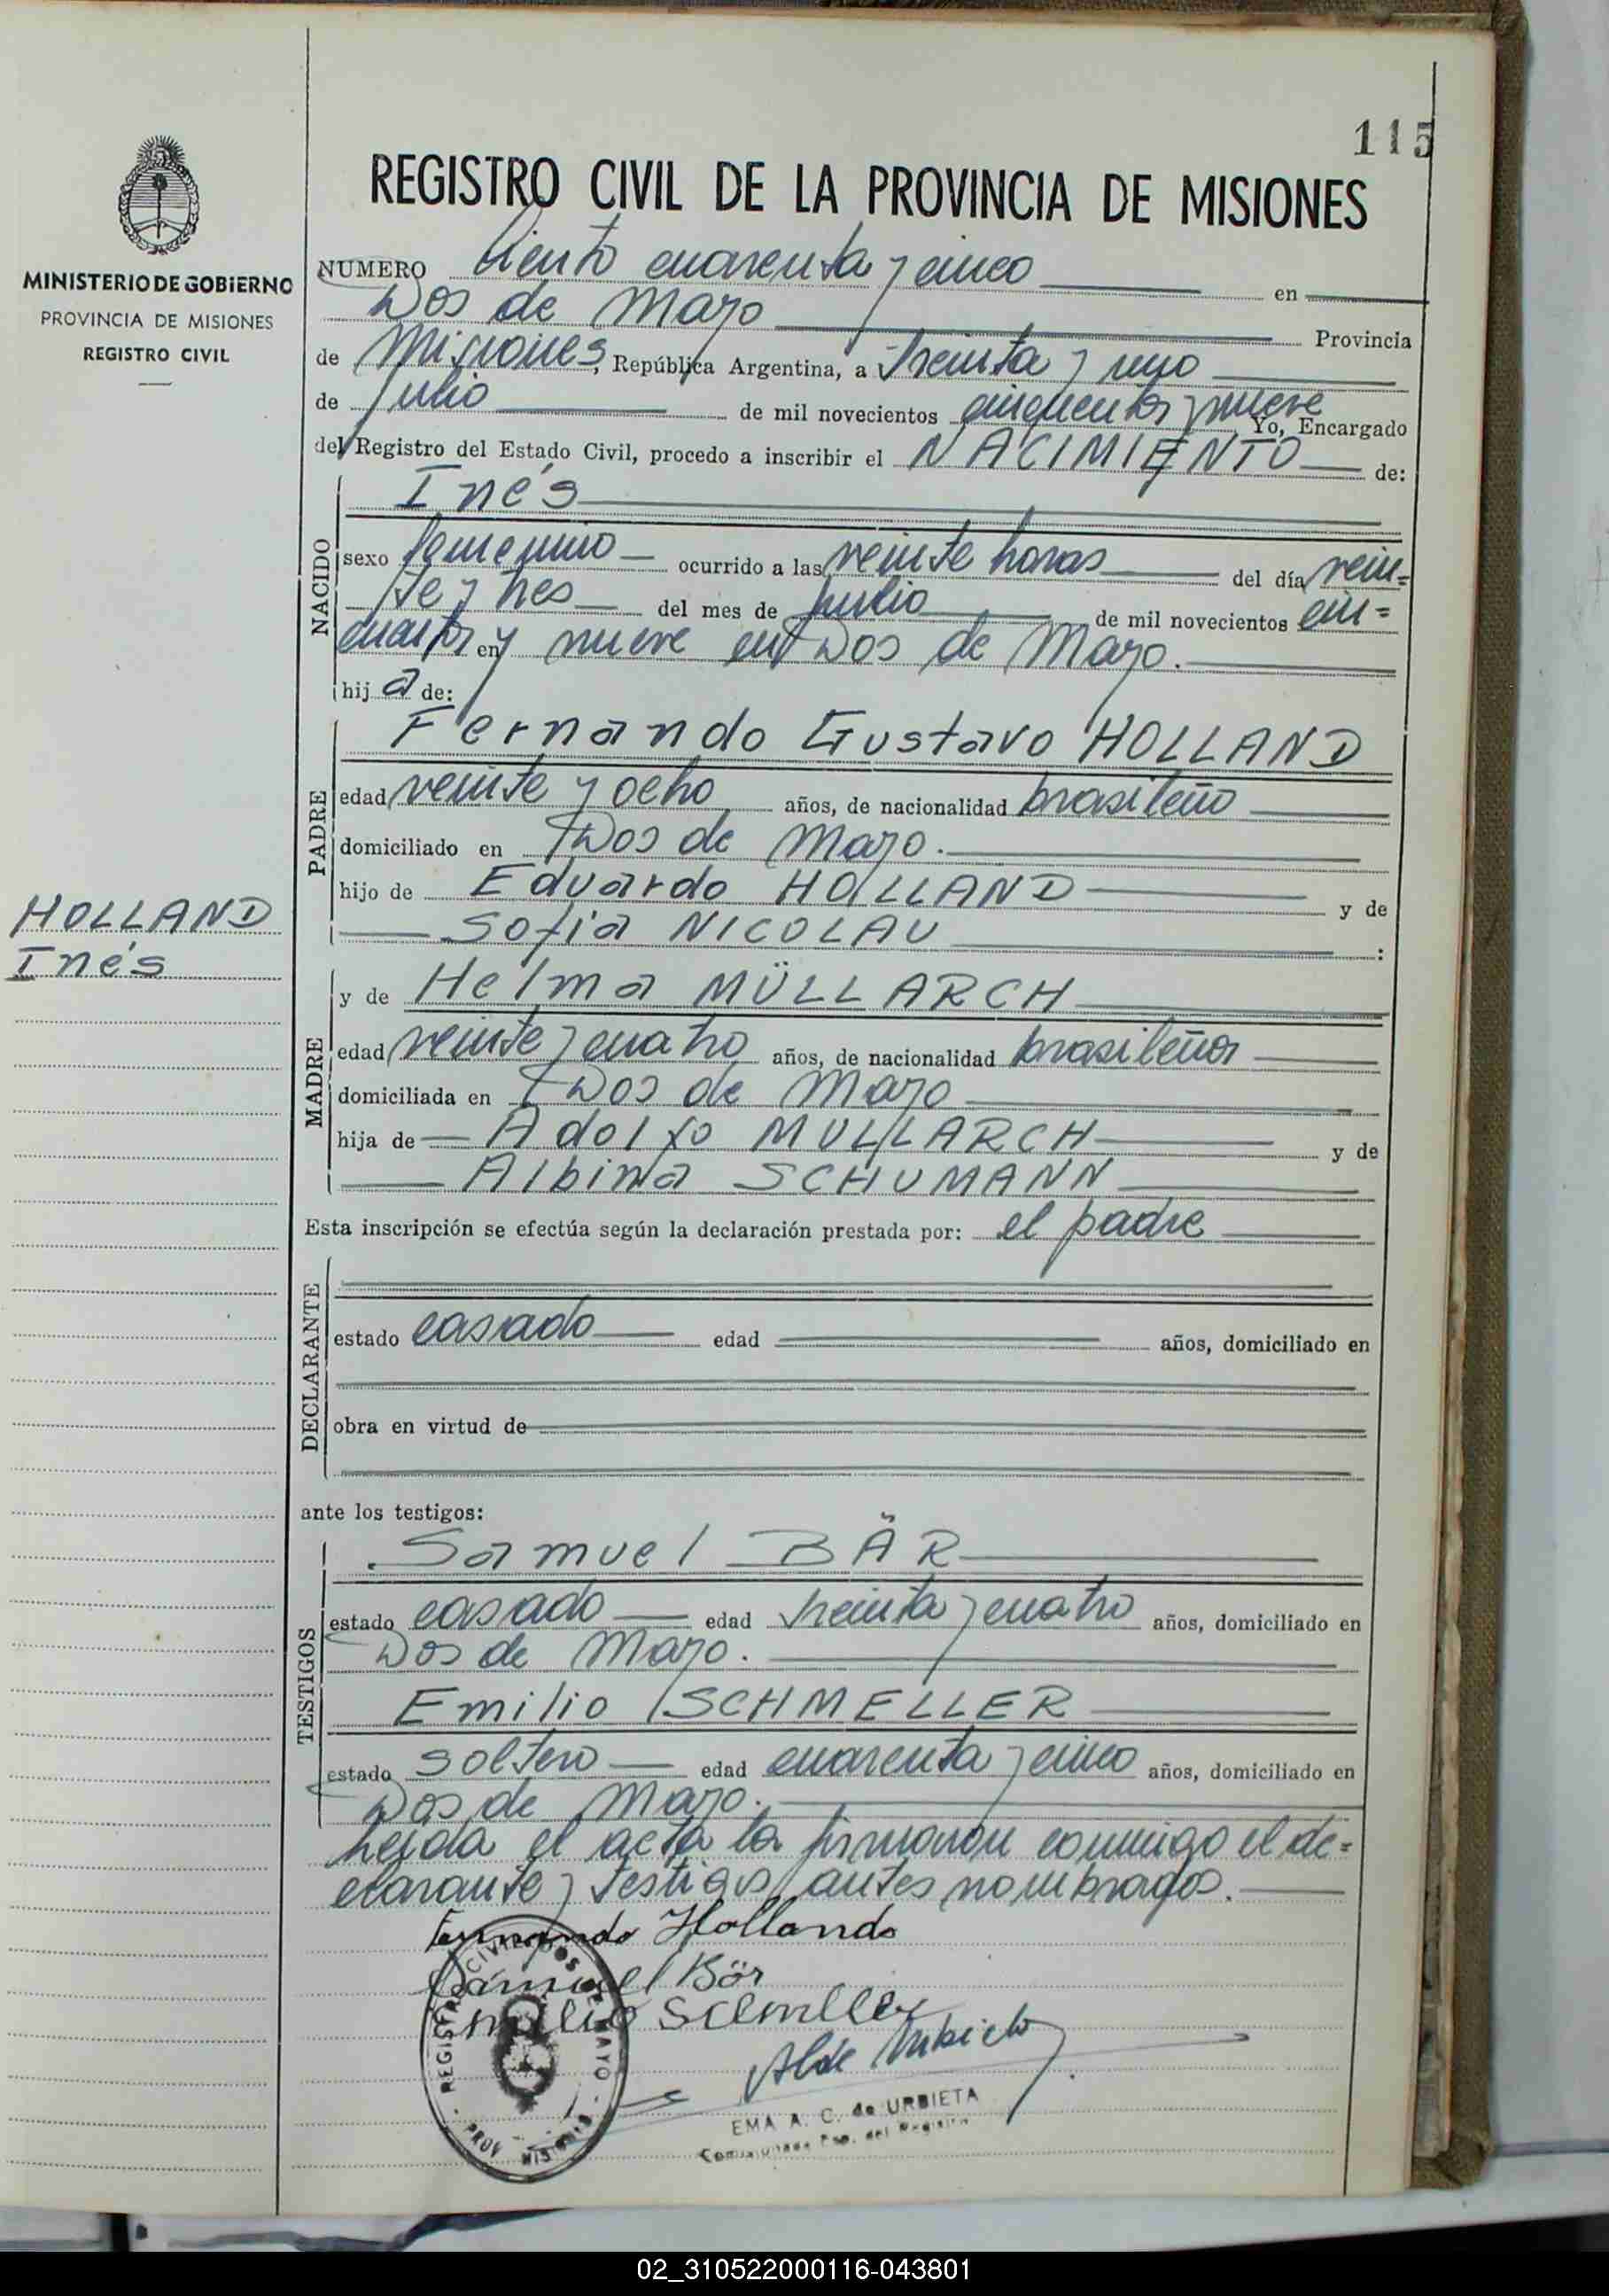 115
REGISTRO CIVIL DE LA PROVINCIA DE MISIONES
MINISTERIO DE GOBIERNO
PROVINCIA DE MISIONES
REGISTRO CIVIL
NUMERO Ciento cuarenta y cinco en
Dos de Mayo Provincia
de Misiones, República Argentina, a treinta y uno
de julio de mil novecientos cincuenta y nueve Yo, Encargado
del Registro del Estado Civil, procedo a inscribir el NACIMIENTO de:
NACIDO
Inés
sexo femenino ocurrido a las veinte horas del día vein=
te y tres del mes de julio de mil novecientos cin=
cuenta y nueve en Dos de Mayo.
hija de:
PADRE
Fernando Gustavo HOLLAND
edad veinte y ocho años, de nacionalidad brasileño
domiciliado en Dos de Mayo.
hijo de Eduardo HOLLAND y de
Sofia NICOLAU :
HOLLAND
Inés
MADRE
y de Helma MÜLLARCH
edad veinte y cuatro años, de nacionalidad brasileña
domiciliada en Dos de Mayo
hija de Adolfo MULLARCH y de
Albina SCHUMANN
Esta inscripción se efectúa según la declaración prestada por: el padre
DECLARANTE
estado casado edad años, domiciliado en
obra en virtud de
ante los testigos:
TESTIGOS
Samuel BÄR
estado casado edad treinta y cuatro años, domiciliado en
Dos de Mayo.
Emilio SCHMELLER
estado soltero edad cuarenta y cinco años, domiciliado en
Dos de Mayo.
Leida el acta la firmaron conmigo el de=
clarante y testigos antes nombrados.
Fernando Hollando
Samuel Bär
Emilio
REGISTRO CIVIL DOS DE MAYO - PROV. MISIONES -
EMA A. C. de URBIETA
del Registro
02_310522000116-043801